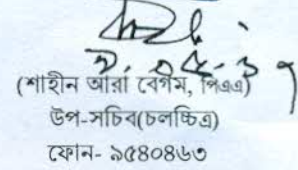 (শাহীন আরা বেগম, পিএএ)
উপ-সচিব(চলচ্চিত্র)
ফোন- ৯৫৪০৪৬৩